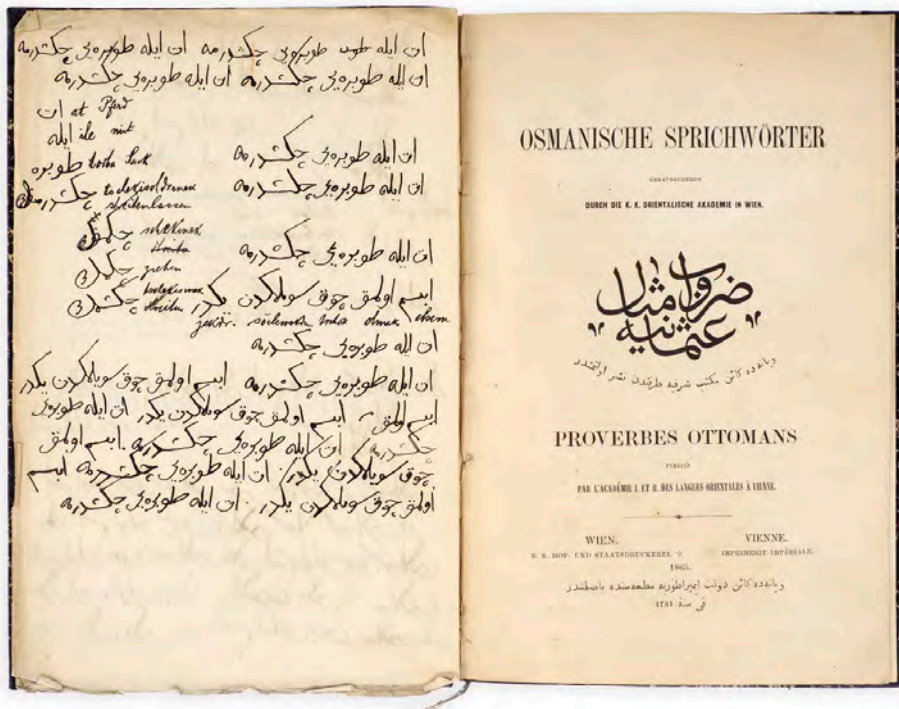 ات ايله طوبره يى چكشدرمه ات ايله طوبره يى چكشدرمه
ات ايله طوبره يى چكشدرمه ات ايله طوبره يى چكشدرمه
ات at Pferd
ايله ile mit
ات ايله طوبره يى چكشدرمه
طوبره torba Sack
ات ايله طوبره يى چكشدرمه
چكشدرمك
streitenlassen
چكمك
ات ايله طوبره يى چكشدرمه
چكمك ziehen
ابسم اولمق چوق سويلمكدن يكدر
چكشمك streiten
jekdr. söilemekden olmak ebsem
ات ايله طوبره يى چكشدرمه
ات ايله طوبره يى چكشدرمه ابسم اولمق چوق سويلمكدن يكدر
ابسم اولمق ابسم اولمق چوق سويلمكدن يكدر ات ايله طوبره يى
چكشدرمه ات ايله طوبره يى چكشدرمه ابسم اولمق
چوق سويلمكدن يكدر ات ايله طوبره يى چكشدرمه ابسم
اولمق چوق سويلمكدن يكدر ات ايله طوبره يى چكشدرمه
OSMANISCHE SPRICHWÖRTER
HERAUSGEGEBEN
DURCH DIE K. K. ORIENTALISCHE AKADEMIE IN WIEN.
ضروب امثال
عثمانيه
ويانه‌ده كائن مكتب شرقيه طرفندن نشر اولنمشدر
PROVERBES OTTOMANS
PUBLIÉS
PAR L'ACADÉMIE I. ET R. DES LANGUES ORIENTALES À VIENNE.
WIEN. VIENNE.
K. K. HOF- UND STAATSDRUCKEREI. IMPRIMERIE IMPÉRIALE.
1865.
ويانه‌ده كائن دولت ايمپراطوريه مطبعه‌سنده باصلمشدر
فى سنة ١٢٨١